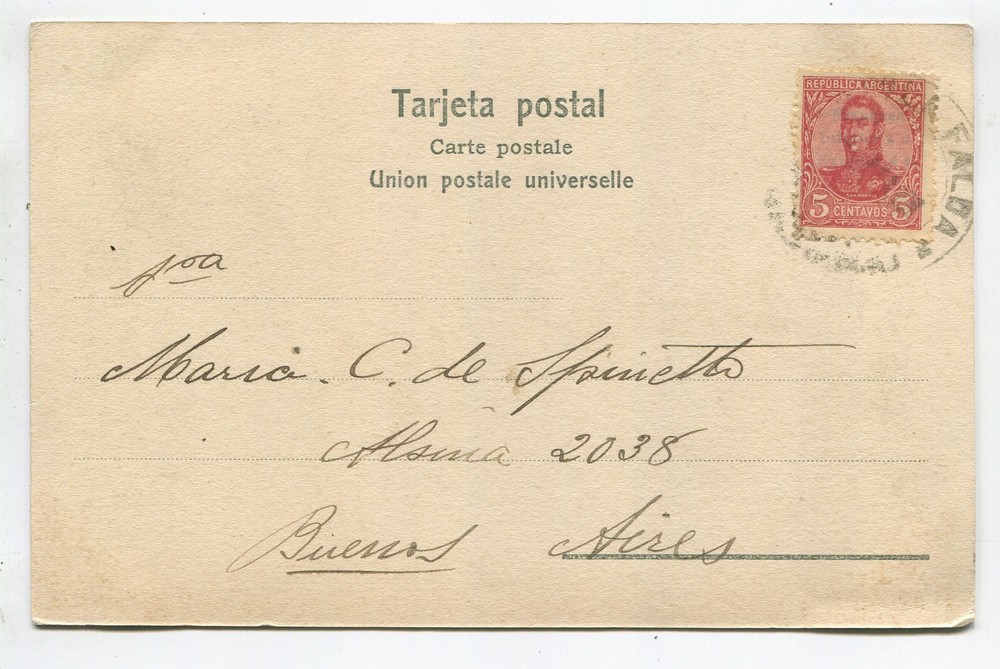 Tarjeta postal
Carte postale
Union postale universelle
REPUBLICA ARGENTINA
SAN MARTIN
5 CENTAVOS 5
FALDA
pra
Maria C. de Spinetto
Alsina 2038
Buenos Aires